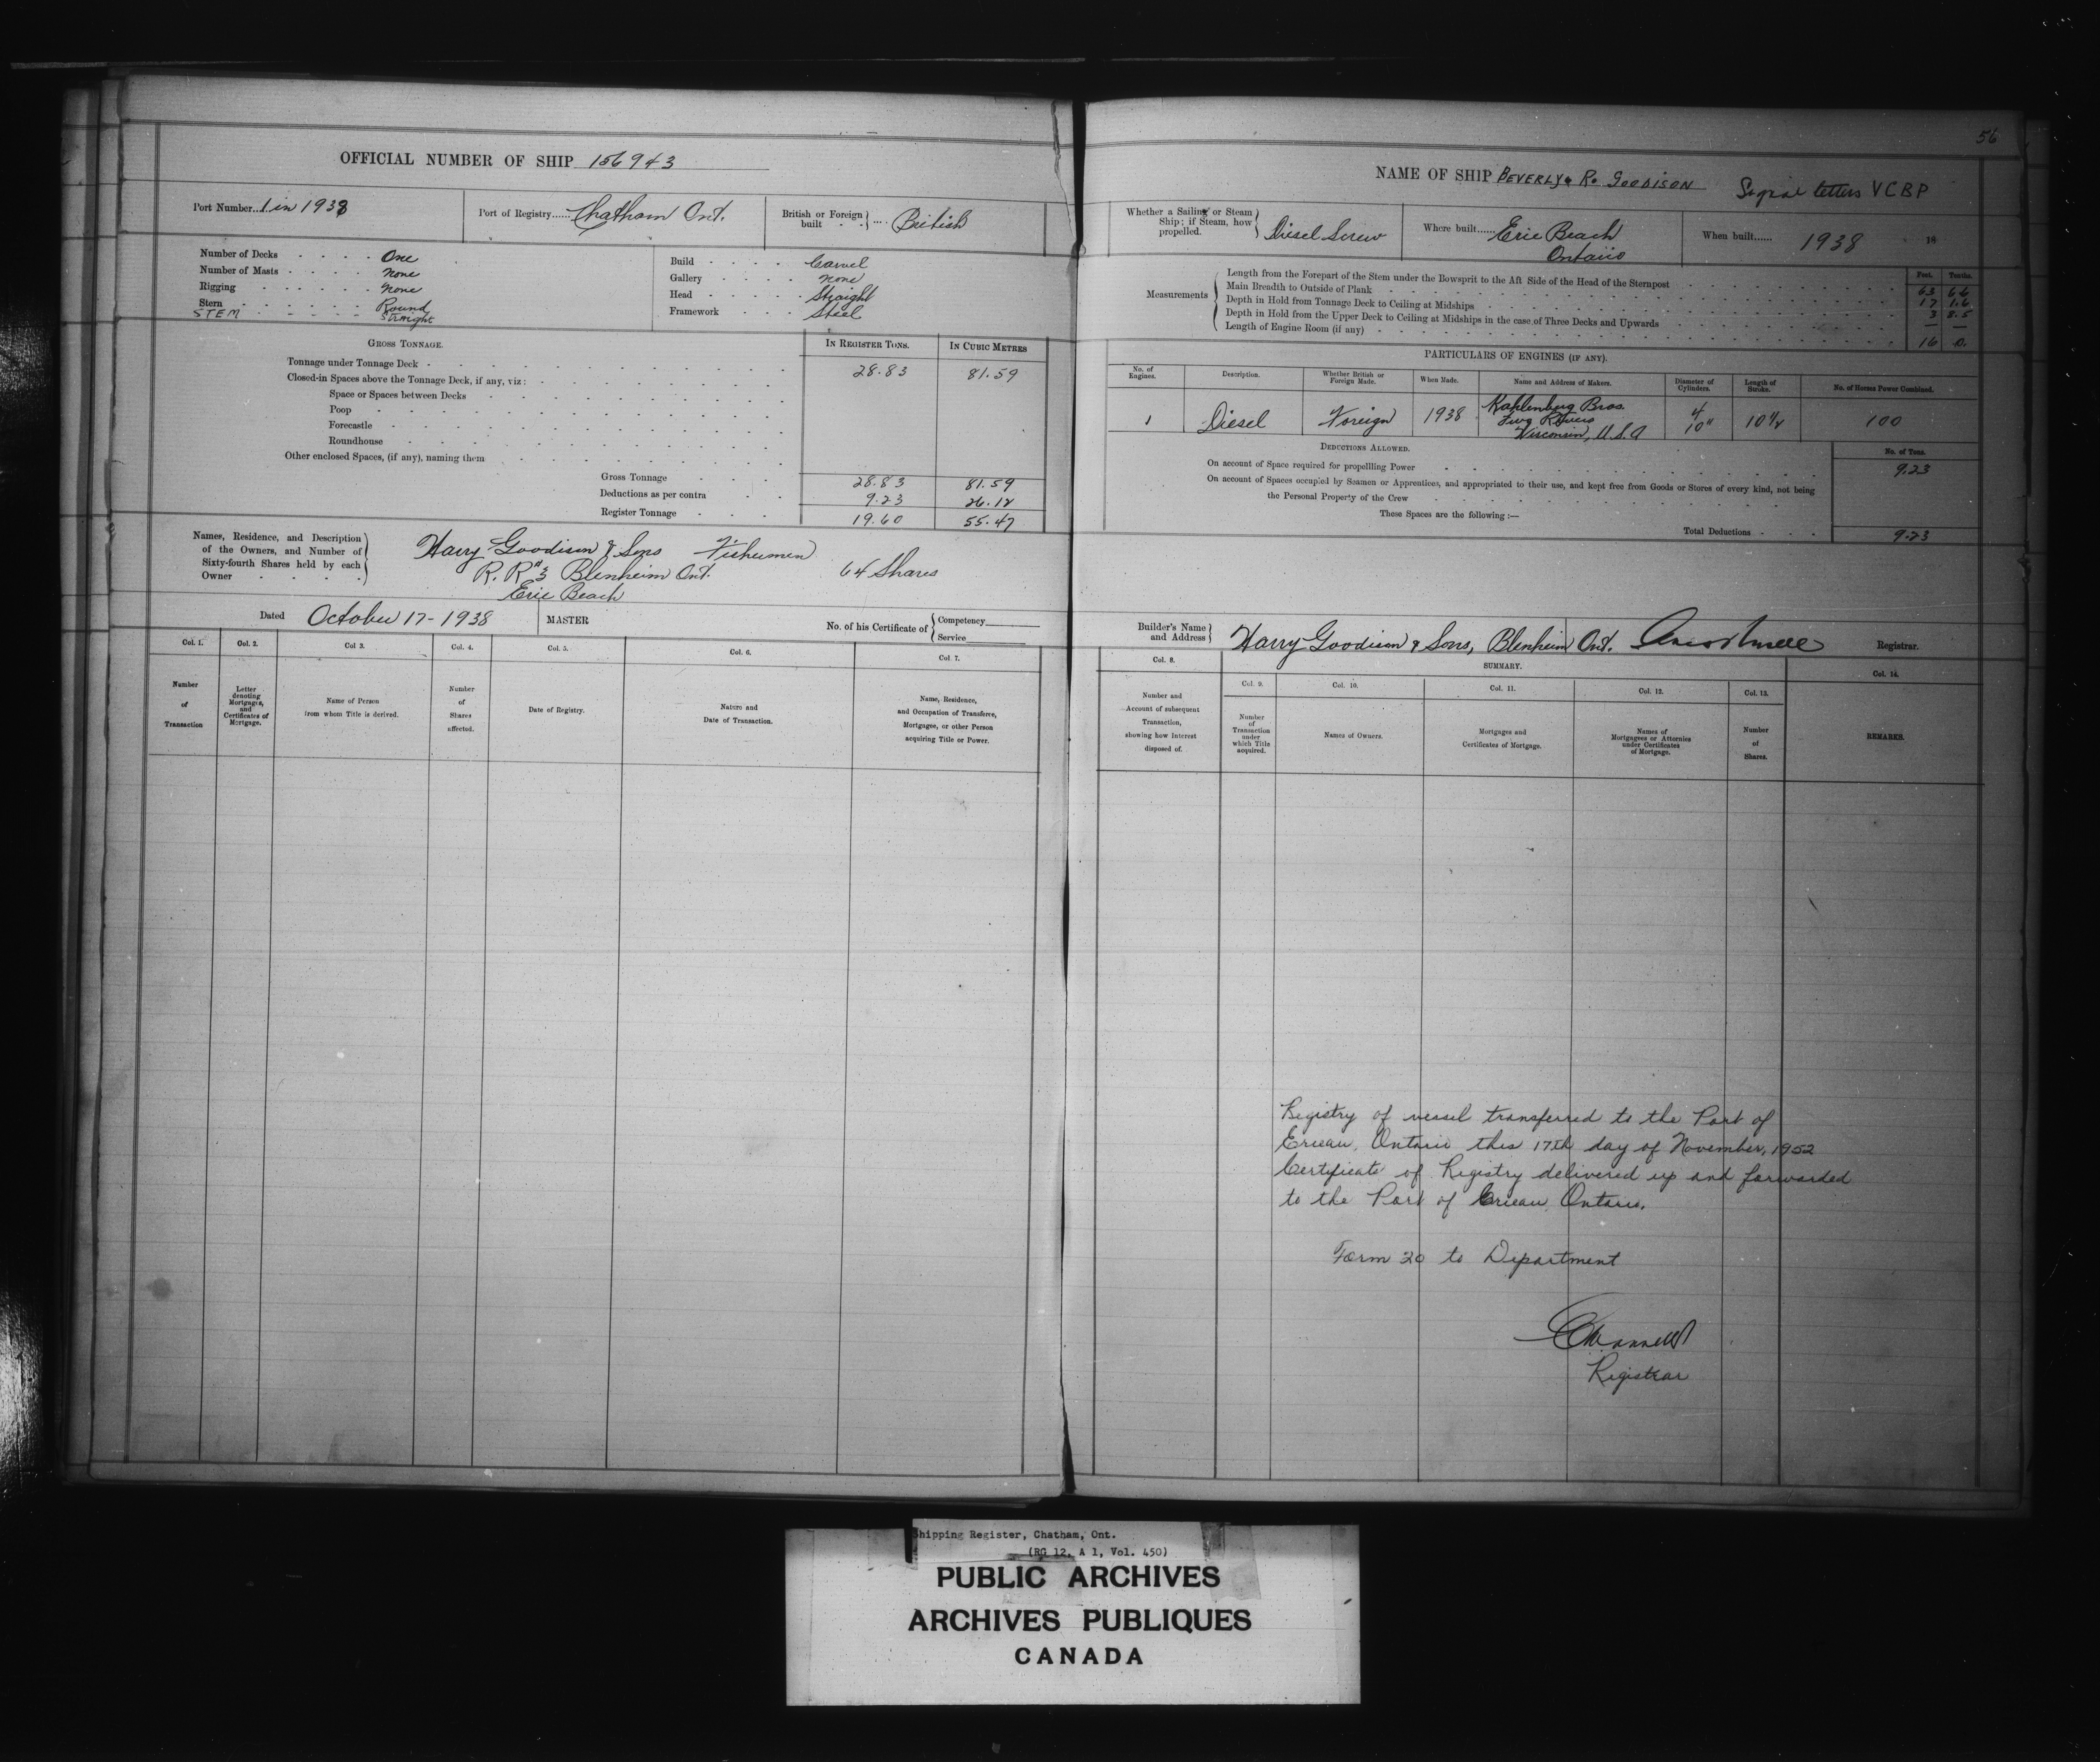 56
OFFICIAL NUMBER OF SHIP 156943
NAME OF SHIP BEVERLY R. GOODISON Signal letters VCBP
Port Number 1 in 1938
Port of Registry Chatham Ont.
British or Foreign built British
Whether a Sailing or Steam Ship; if Steam, how propelled. Diesel Screw
Where built Erie Beach Ontario
When built 1938 18
Number of Decks One
Number of Masts None
Rigging None
Stern Round
STEM Straight
Build Carvel
Gallery None
Head Straight
Framework Steel
Measurements
Feet. Tenths.
Length from the Forepart of the Stem under the Bowsprit to the Aft Side of the Head of the Sternpost 63 6.6
Main Breadth to Outside of Plank 17 1.6
Depth in Hold from Tonnage Deck to Ceiling at Midships 3 8.5
Depth in Hold from the Upper Deck to Ceiling at Midships in the case of Three Decks and Upwards — —
Length of Engine Room (if any) 16 0.
GROSS TONNAGE.
IN REGISTER TONS. IN CUBIC METRES
Tonnage under Tonnage Deck 28.83 81.59
Closed-in Spaces above the Tonnage Deck, if any, viz:
Space or Spaces between Decks
Poop
Forecastle
Roundhouse
Other enclosed Spaces, (if any), naming them
Gross Tonnage 28.83 81.59
Deductions as per contra 9.23 26.12
Register Tonnage 19.60 55.47
PARTICULARS OF ENGINES (IF ANY).
No. of Engines. Description. Whether British or Foreign Made. When Made. Name and Address of Makers. Diameter of Cylinders. Length of Stroke. No. of Horses Power Combined.
1 Diesel Foreign 1938 Kahlenberg Bros. Two Rivers Wisconsin, U.S.A 4 10" 100
DEDUCTIONS ALLOWED.
No. of Tons.
On account of Space required for propelling Power 9.23
On account of Spaces occupied by Seamen or Apprentices, and appropriated to their use, and kept free from Goods or Stores of every kind, not being
the Personal Property of the Crew
These Spaces are the following:—
Total Deductions 9.23
Names, Residence, and Description
of the Owners, and Number of
Sixty-fourth Shares held by each
Owner
Harry Goodison & Sons Fishermen
R.R #3 Blenheim Ont. 64 Shares
Erie Beach
Dated October 17 - 1938 MASTER No. of his Certificate of Competency Service
Builder's Name and Address Harry Goodison & Sons, Blenheim Ont. Registrar.
Col. 1. Col. 2. Col 3. Col. 4. Col. 5. Col. 6. Col. 7.
Number of Transaction
Letter denoting Mortgages, and Certificates of Mortgage.
Name of Person from whom Title is derived.
Number of Shares affected.
Date of Registry.
Nature and Date of Transaction.
Name, Residence, and Occupation of Transferee, Mortgagee, or other Person acquiring Title or Power.
SUMMARY.
Col. 8. Col. 9. Col. 10. Col. 11. Col. 12. Col. 13. Col. 14.
Number and Account of subsequent Transaction, showing how Interest disposed of.
Number of Transaction under which Title acquired.
Names of Owners.
Mortgages and Certificates of Mortgage.
Names of Mortgagees or Attornies under Certificates of Mortgage.
Number of Shares.
REMARKS.
Registry of vessel transferred to the Port of
Erieau, Ontario this 17th day of November, 1952
Certificate of Registry delivered up and forwarded
to the Port of Erieau, Ontario.
Form 20 to Department
Registrar
Shipping Register, Chatham, Ont.
(RG 12, A 1, Vol. 450)
PUBLIC ARCHIVES
ARCHIVES PUBLIQUES
CANADA